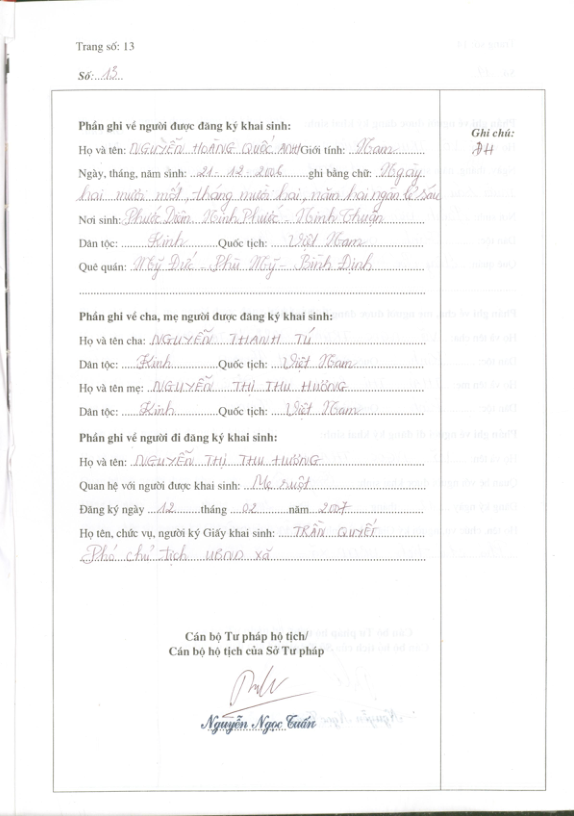 Trang số: 13
Số: 13
Phần ghi về người được đăng ký khai sinh:
Ghi chú:
Họ và tên: NGUYỄN HOÀNG QUỐC ANH Giới tính: Nam
ĐH
Ngày, tháng, năm sinh: 21-12-2006 ghi bằng chữ: Ngày
hai mươi mốt, tháng mười hai, năm hai ngàn lẻ sáu
Nơi sinh: Phước Dân - Ninh Phước - Ninh Thuận
Dân tộc: Kinh Quốc tịch: Việt Nam
Quê quán: Mỹ Đức - Phù Mỹ - Bình Định
Phần ghi về cha, mẹ người được đăng ký khai sinh:
Họ và tên cha: NGUYỄN THÀNH TÚ
Dân tộc: Kinh Quốc tịch: Việt Nam
Họ và tên mẹ: NGUYỄN THỊ THU HƯỜNG
Dân tộc: Kinh Quốc tịch: Việt Nam
Phần ghi về người đi đăng ký khai sinh:
Họ và tên: NGUYỄN THỊ THU HƯỜNG
Quan hệ với người được khai sinh: Mẹ ruột
Đăng ký ngày 12 tháng 02 năm 2007
Họ tên, chức vụ, người ký Giấy khai sinh: TRẦN QUYẾT
Phó chủ tịch UBND xã
Cán bộ Tư pháp hộ tịch/
Cán bộ hộ tịch của Sở Tư pháp
Nguyễn Ngọc Tuấn